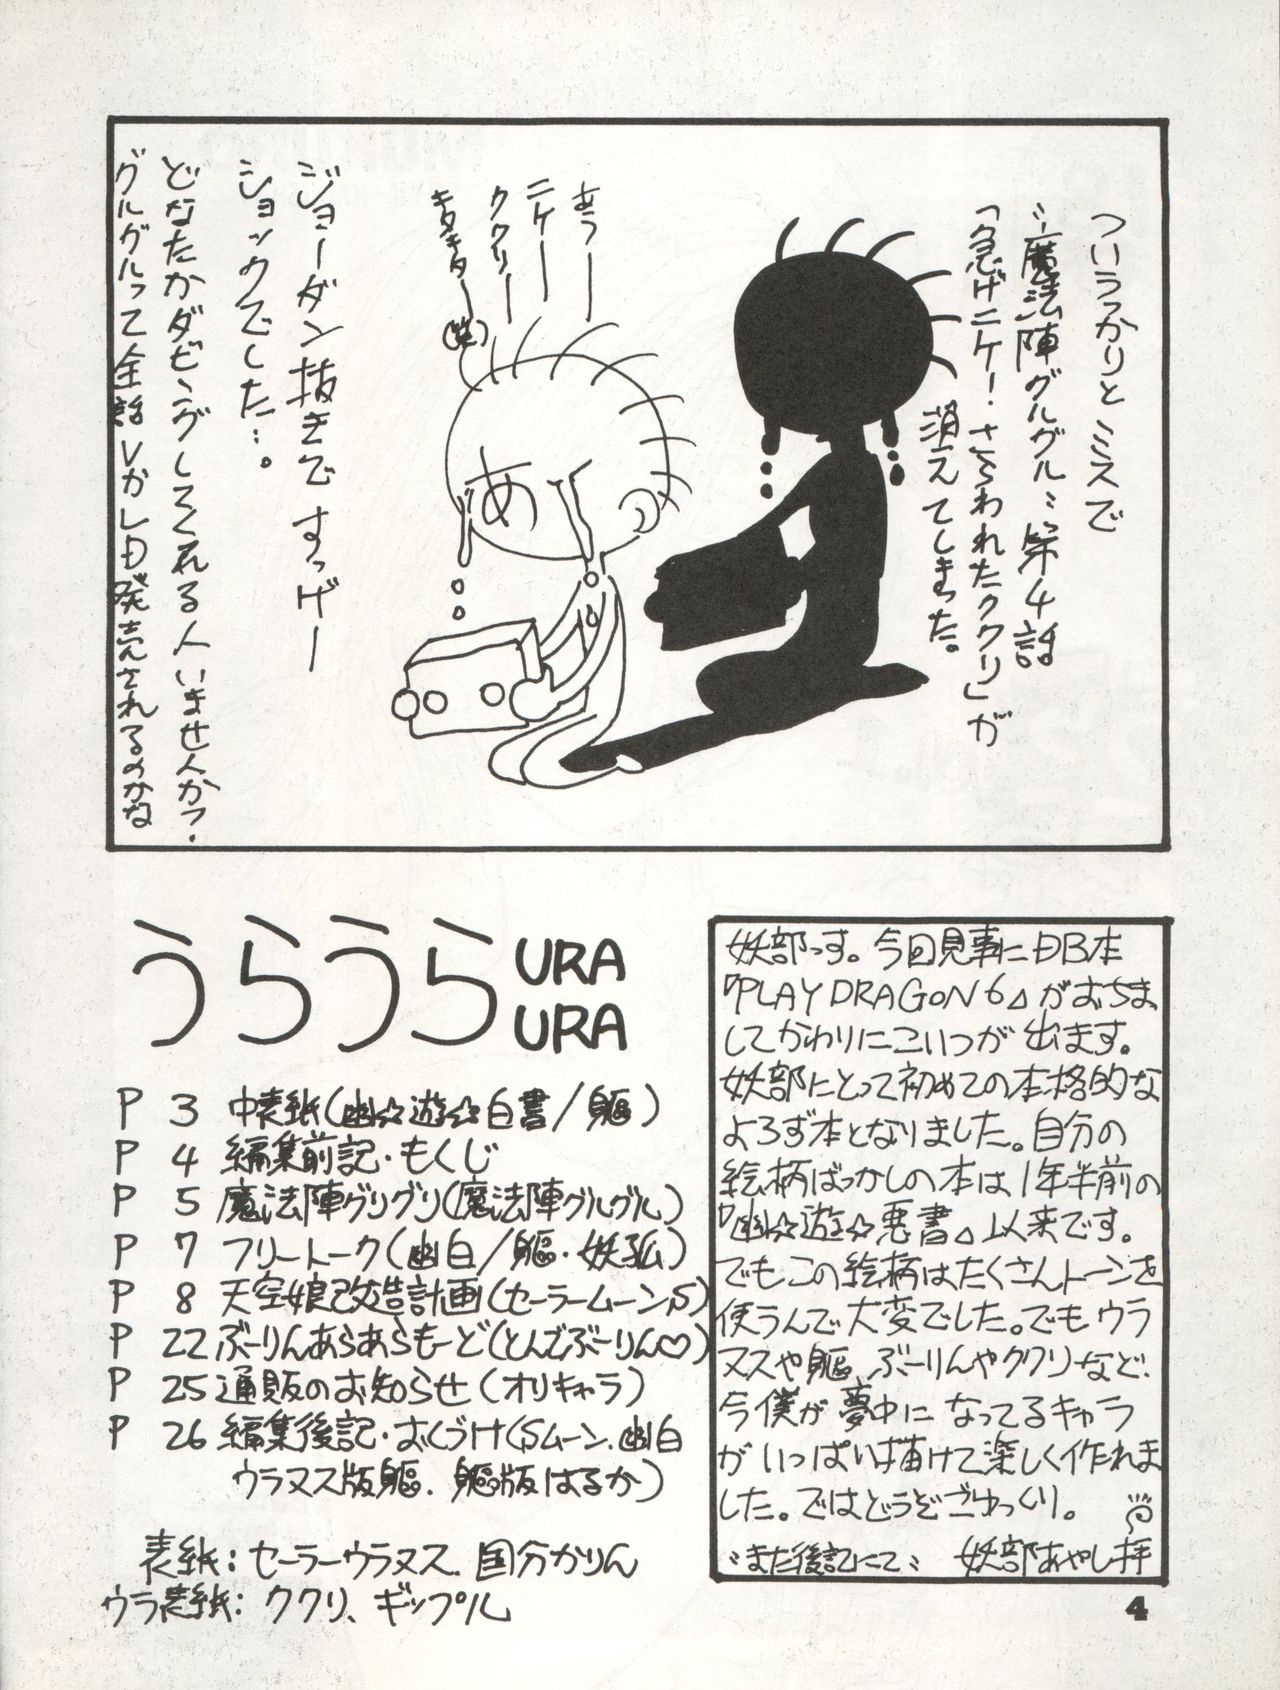 ついうっかりとミスで
"魔法陣グルグル"第4話
「急げニケ！さらわれたククリ」が
消えてしまった。
あうー
ニケー
ククリー
キタキター(笑)
あ
ジョーダン抜きですっげー
ショックでした…。
どなたかダビングしてくれる人いませんか？
グルグルって全話LD発売されるのかな
うらうら
URA
URA
P 3 中表紙(幽☆遊☆白書/軀)
P 4 編集前記・もくじ
P 5 魔法陣グリグリ(魔法陣グルグル)
P 7 フリートーク(幽白/軀・妖狐)
P 8 天空娘改造計画(セーラームーンS)
P 22 ぶーりんあらあらもーど(とんでぶーりん♡)
P 25 通販のお知らせ(オリキャラ)
P 26 編集後記・おくづけ(Sムーン.幽白
ウラヌス版軀.軀版はるか)
表紙:セーラーウラヌス.国分かりん
ウラ表紙:ククリ、ギップル
妖部っす。今回見事にDB本
『PLAY DRAGON6』がおちま
してかわりにこいつが出ます。
妖部にとって初めての本格的な
よろず本となりました。自分の
絵柄ばっかしの本は1年半前の
『幽☆遊☆悪書』以来です。
でもこの絵柄はたくさんトーンを
使うんで大変でした。でもウラ
ヌスや軀、ぶーりんやククリなど、
今僕が夢中になってるキャラ
がいっぱい描けて楽しく作れま
した。ではどうぞごゆっくり。
"また後記にて" 妖部あやし拝
4